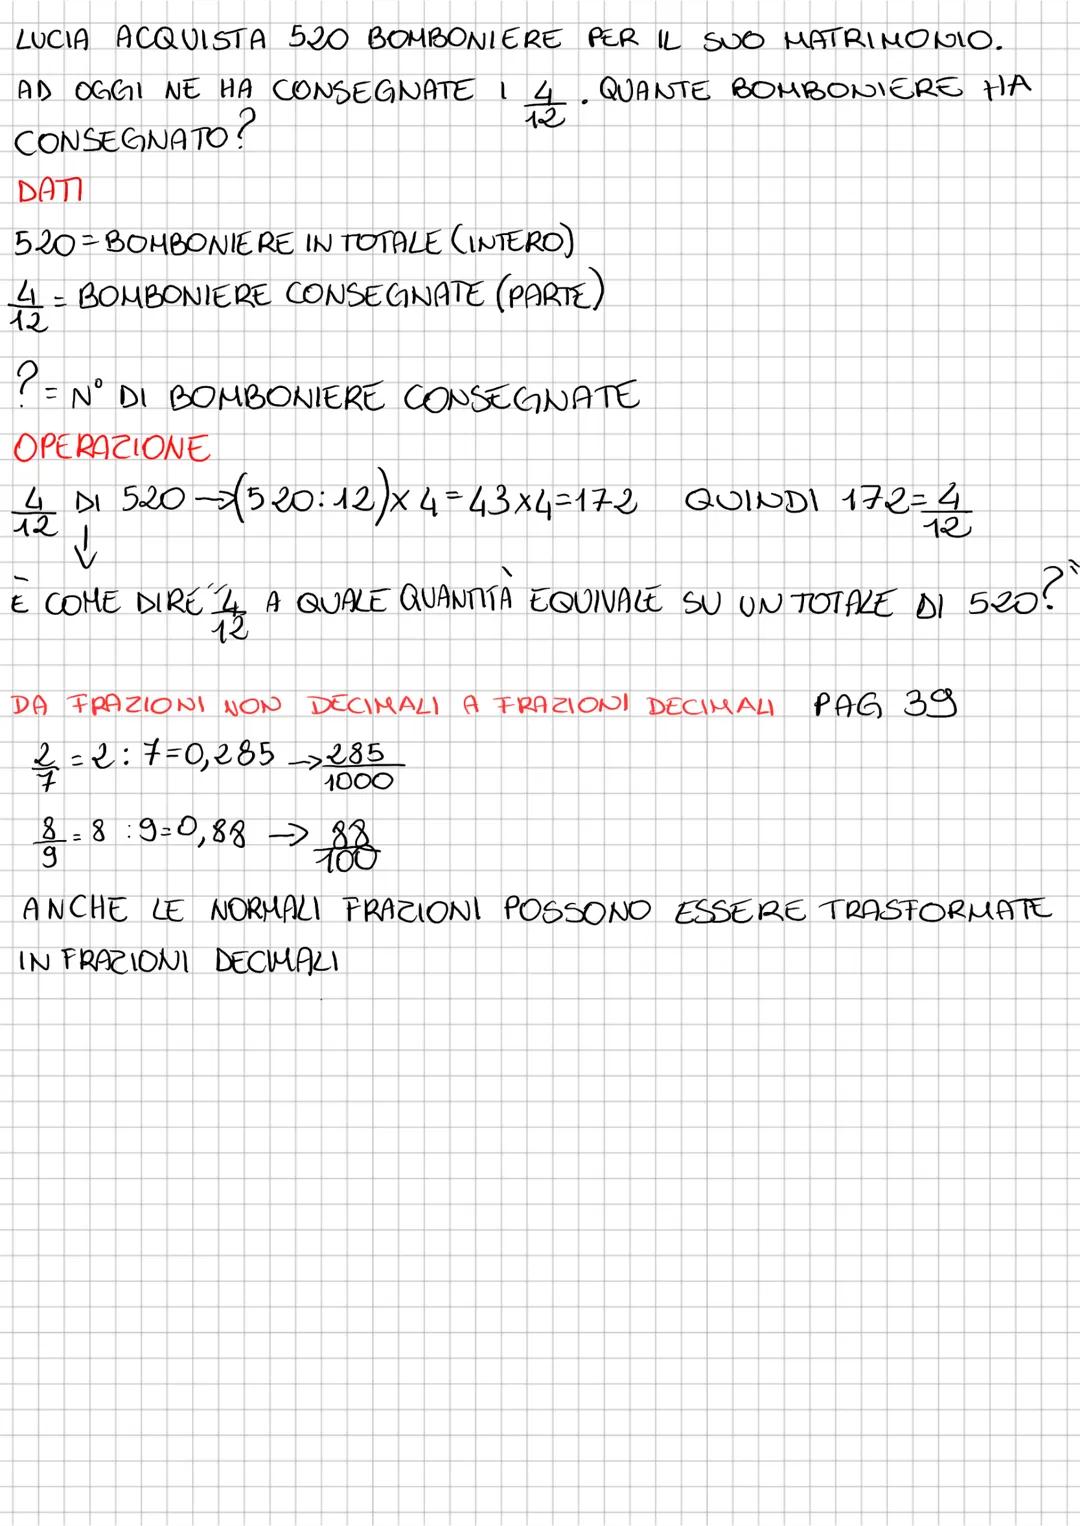 LUCIA ACQUISTA 520 BOMBONIERE PER IL SUO MATRIMONIO.
AD OGGI NE HA CONSEGNATE I 4/12. QUANTE BOMBONIERE HA
CONSEGNATO?
DATI
520=BOMBONIERE IN TOTALE (INTERO)
4/12 = BOMBONIERE CONSEGNATE (PARTE)
? = N° DI BOMBONIERE CONSEGNATE
OPERAZIONE
4/12 DI 520 →(520:12)x 4=43x4=172 QUINDI 172=4/12
↓
È COME DIRE "4/12 A QUALE QUANTITÀ EQUIVALE SU UN TOTALE DI 520?"
DA FRAZIONI NON DECIMALI A FRAZIONI DECIMALI PAG 39
2/7 = 2:7=0,285 → 285/1000
8/9 = 8:9=0,88 → 88/100
ANCHE LE NORMALI FRAZIONI POSSONO ESSERE TRASFORMATE
IN FRAZIONI DECIMALI